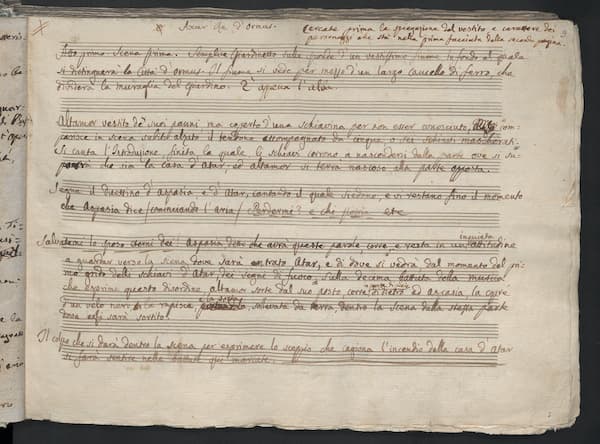 Axur Re d'Ormus.
Cercate prima la spiegazione del vestito e carattere dei
personaggi che sta nella prima facciata della seconda pagina.
Atto primo Scena prima. Semplice giardinetto sulle sponde d'un vastissimo fiume in fondo al quale
si distinguerà la città d'Ormus. Il fiume si vede per mezzo d'un largo cancello di ferro, che
dividerà la muraglia del giardino. È appena l'alba.
Altamor vestito de' suoi panni, ma coperto d'una schiavina per non esser conosciuto, com-
parisce in scena subito alzato il tendone accompagnato da cinque, o sei schiavi mascherati.
Si canta l'Introduzione finita la quale gli schiavi corrono a nascondersi dalla parte ove si su-
porrà che sia la casa d'Atar, ed altamor si terrà nascoso alla parte opposta.
Segue il duettino d'aspasia e d'Atar, cantando il quale siedono, e si restano fino il momento
che Aspasia dice / cominciando l'aria / Perdermi? e che etc
Salvatemi lo sposo eterni dei Aspasia dopo che avrà queste parole corre, e resta in un' attitudine
inquieta
a guardar verso la scena dove sarà entrato Atar, e di dove si vedrà dal momento del pri-
mo grido delli schiavi d'Atar dei segni di fuoco. Sulla decima battuta della musica
che esprime questo disordine altamor sorte dal suo posto, corre di dietro ad aspasia, la copre
d'un velo nero, e la rapisce sollevata da terra, dentro la scena della stessa parte
dove essa sarà sortita.
Il colpo che si darà dentro la scena per esprimere lo scoppio che cagiona l'incendio della casa d'Atar
si farà sentire nelle battute qui marcate.